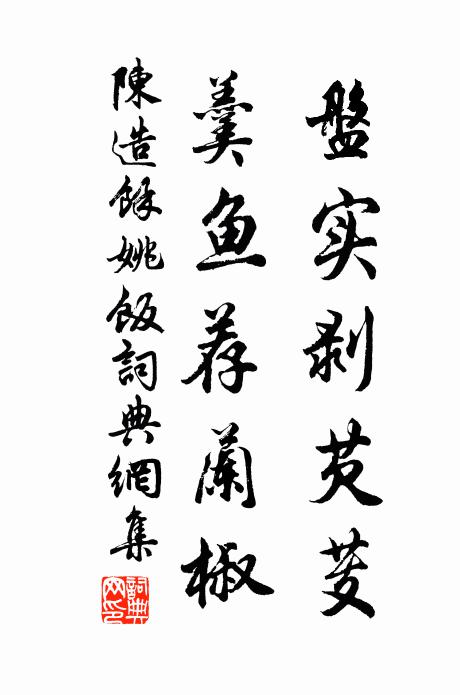 盤实剥芡芰
羹鱼荐蘭椒
陳造餘姚飯詞典網集
詞典网印